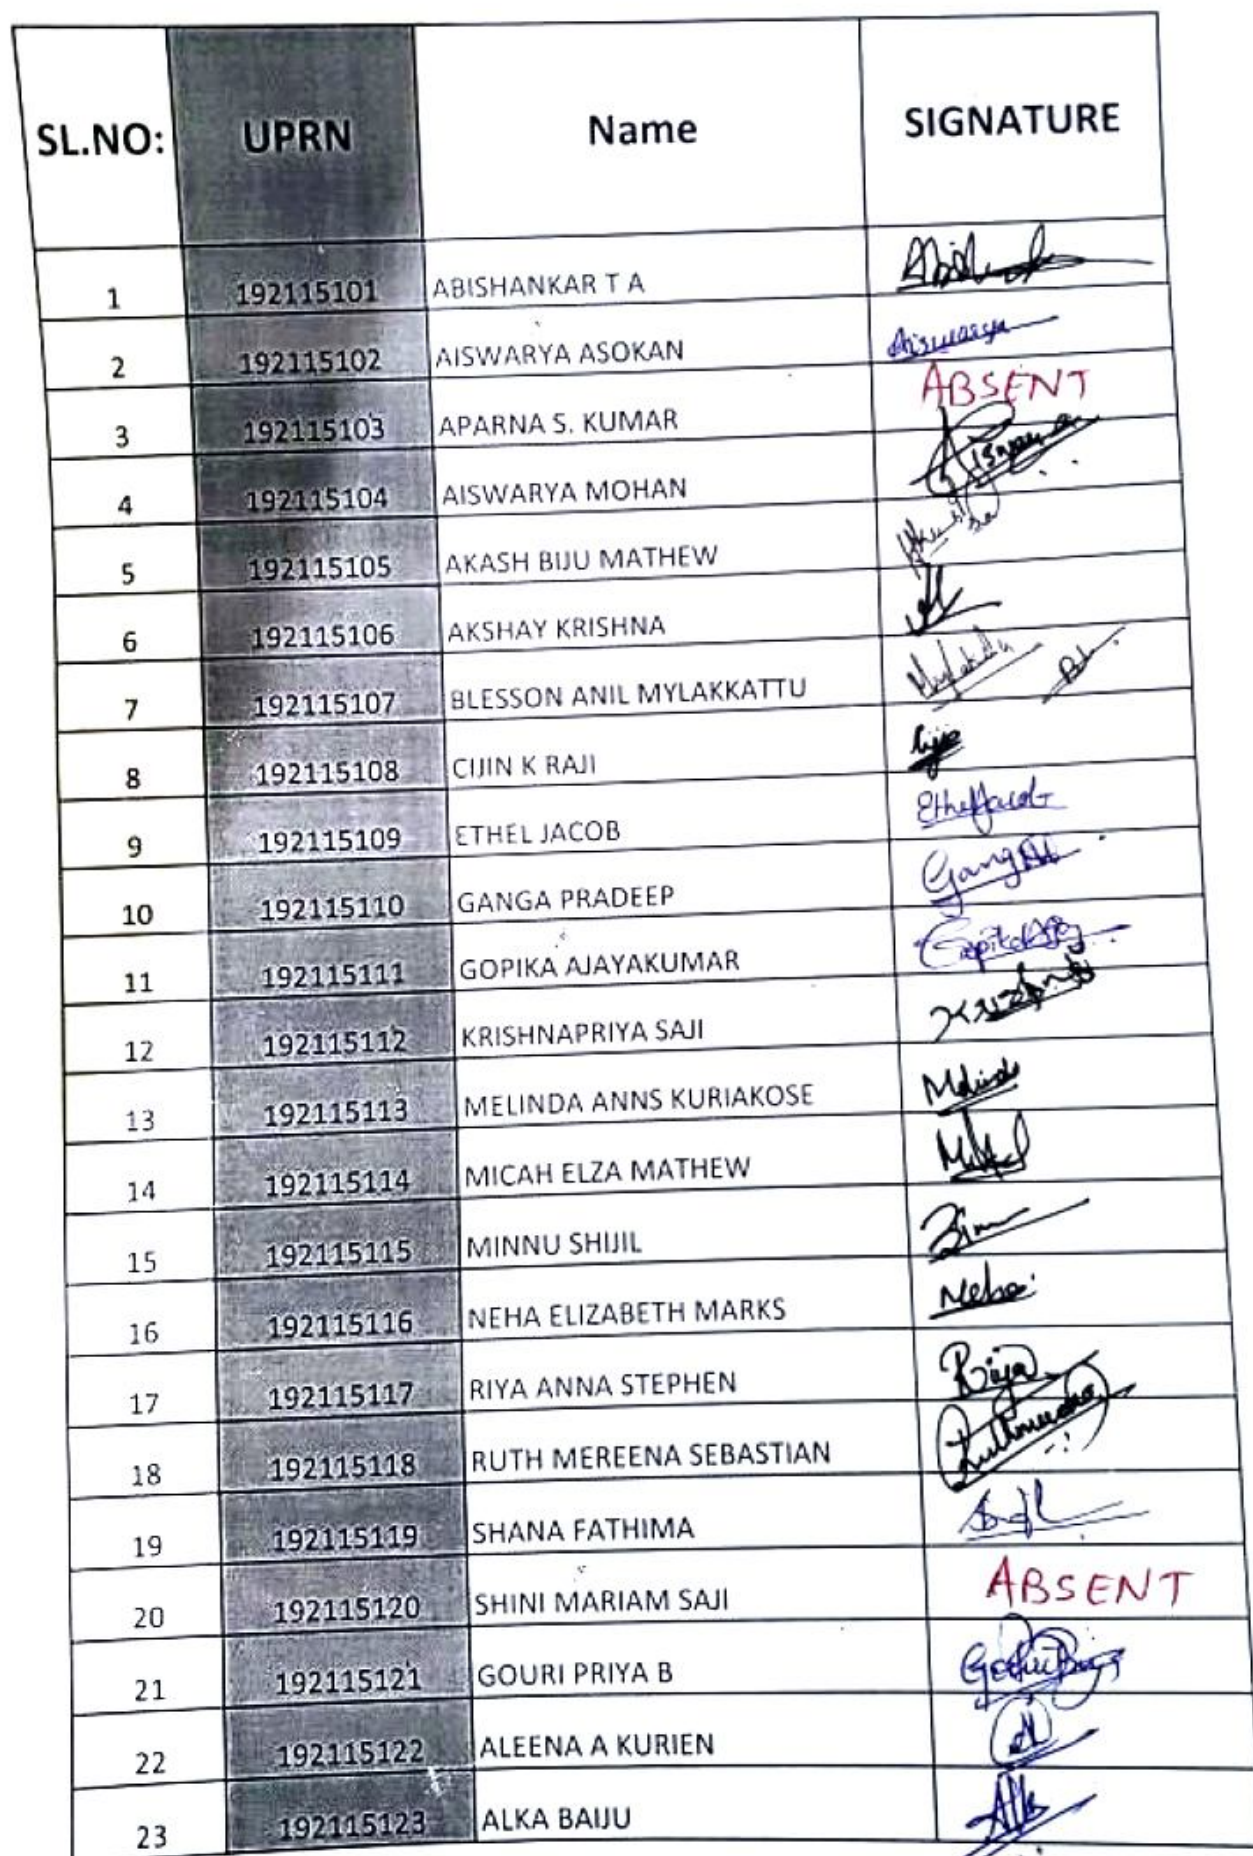 SL.NO: UPRN Name SIGNATURE
1 192115101 ABISHANKAR T A
2 192115102 AISWARYA ASOKAN Aiswarya
3 192115103 APARNA S. KUMAR ABSENT
4 192115104 AISWARYA MOHAN
5 192115105 AKASH BIJU MATHEW
6 192115106 AKSHAY KRISHNA
7 192115107 BLESSON ANIL MYLAKKATTU
8 192115108 CIJIN K RAJI
9 192115109 ETHEL JACOB Ethel Jacob
10 192115110 GANGA PRADEEP
11 192115111 GOPIKA AJAYAKUMAR
12 192115112 KRISHNAPRIYA SAJI
13 192115113 MELINDA ANNS KURIAKOSE Melinda
14 192115114 MICAH ELZA MATHEW
15 192115115 MINNU SHIJIL
16 192115116 NEHA ELIZABETH MARKS Neha
17 192115117 RIYA ANNA STEPHEN Riya
18 192115118 RUTH MEREENA SEBASTIAN
19 192115119 SHANA FATHIMA
20 192115120 SHINI MARIAM SAJI ABSENT
21 192115121 GOURI PRIYA B
22 192115122 ALEENA A KURIEN
23 192115123 ALKA BAIJU